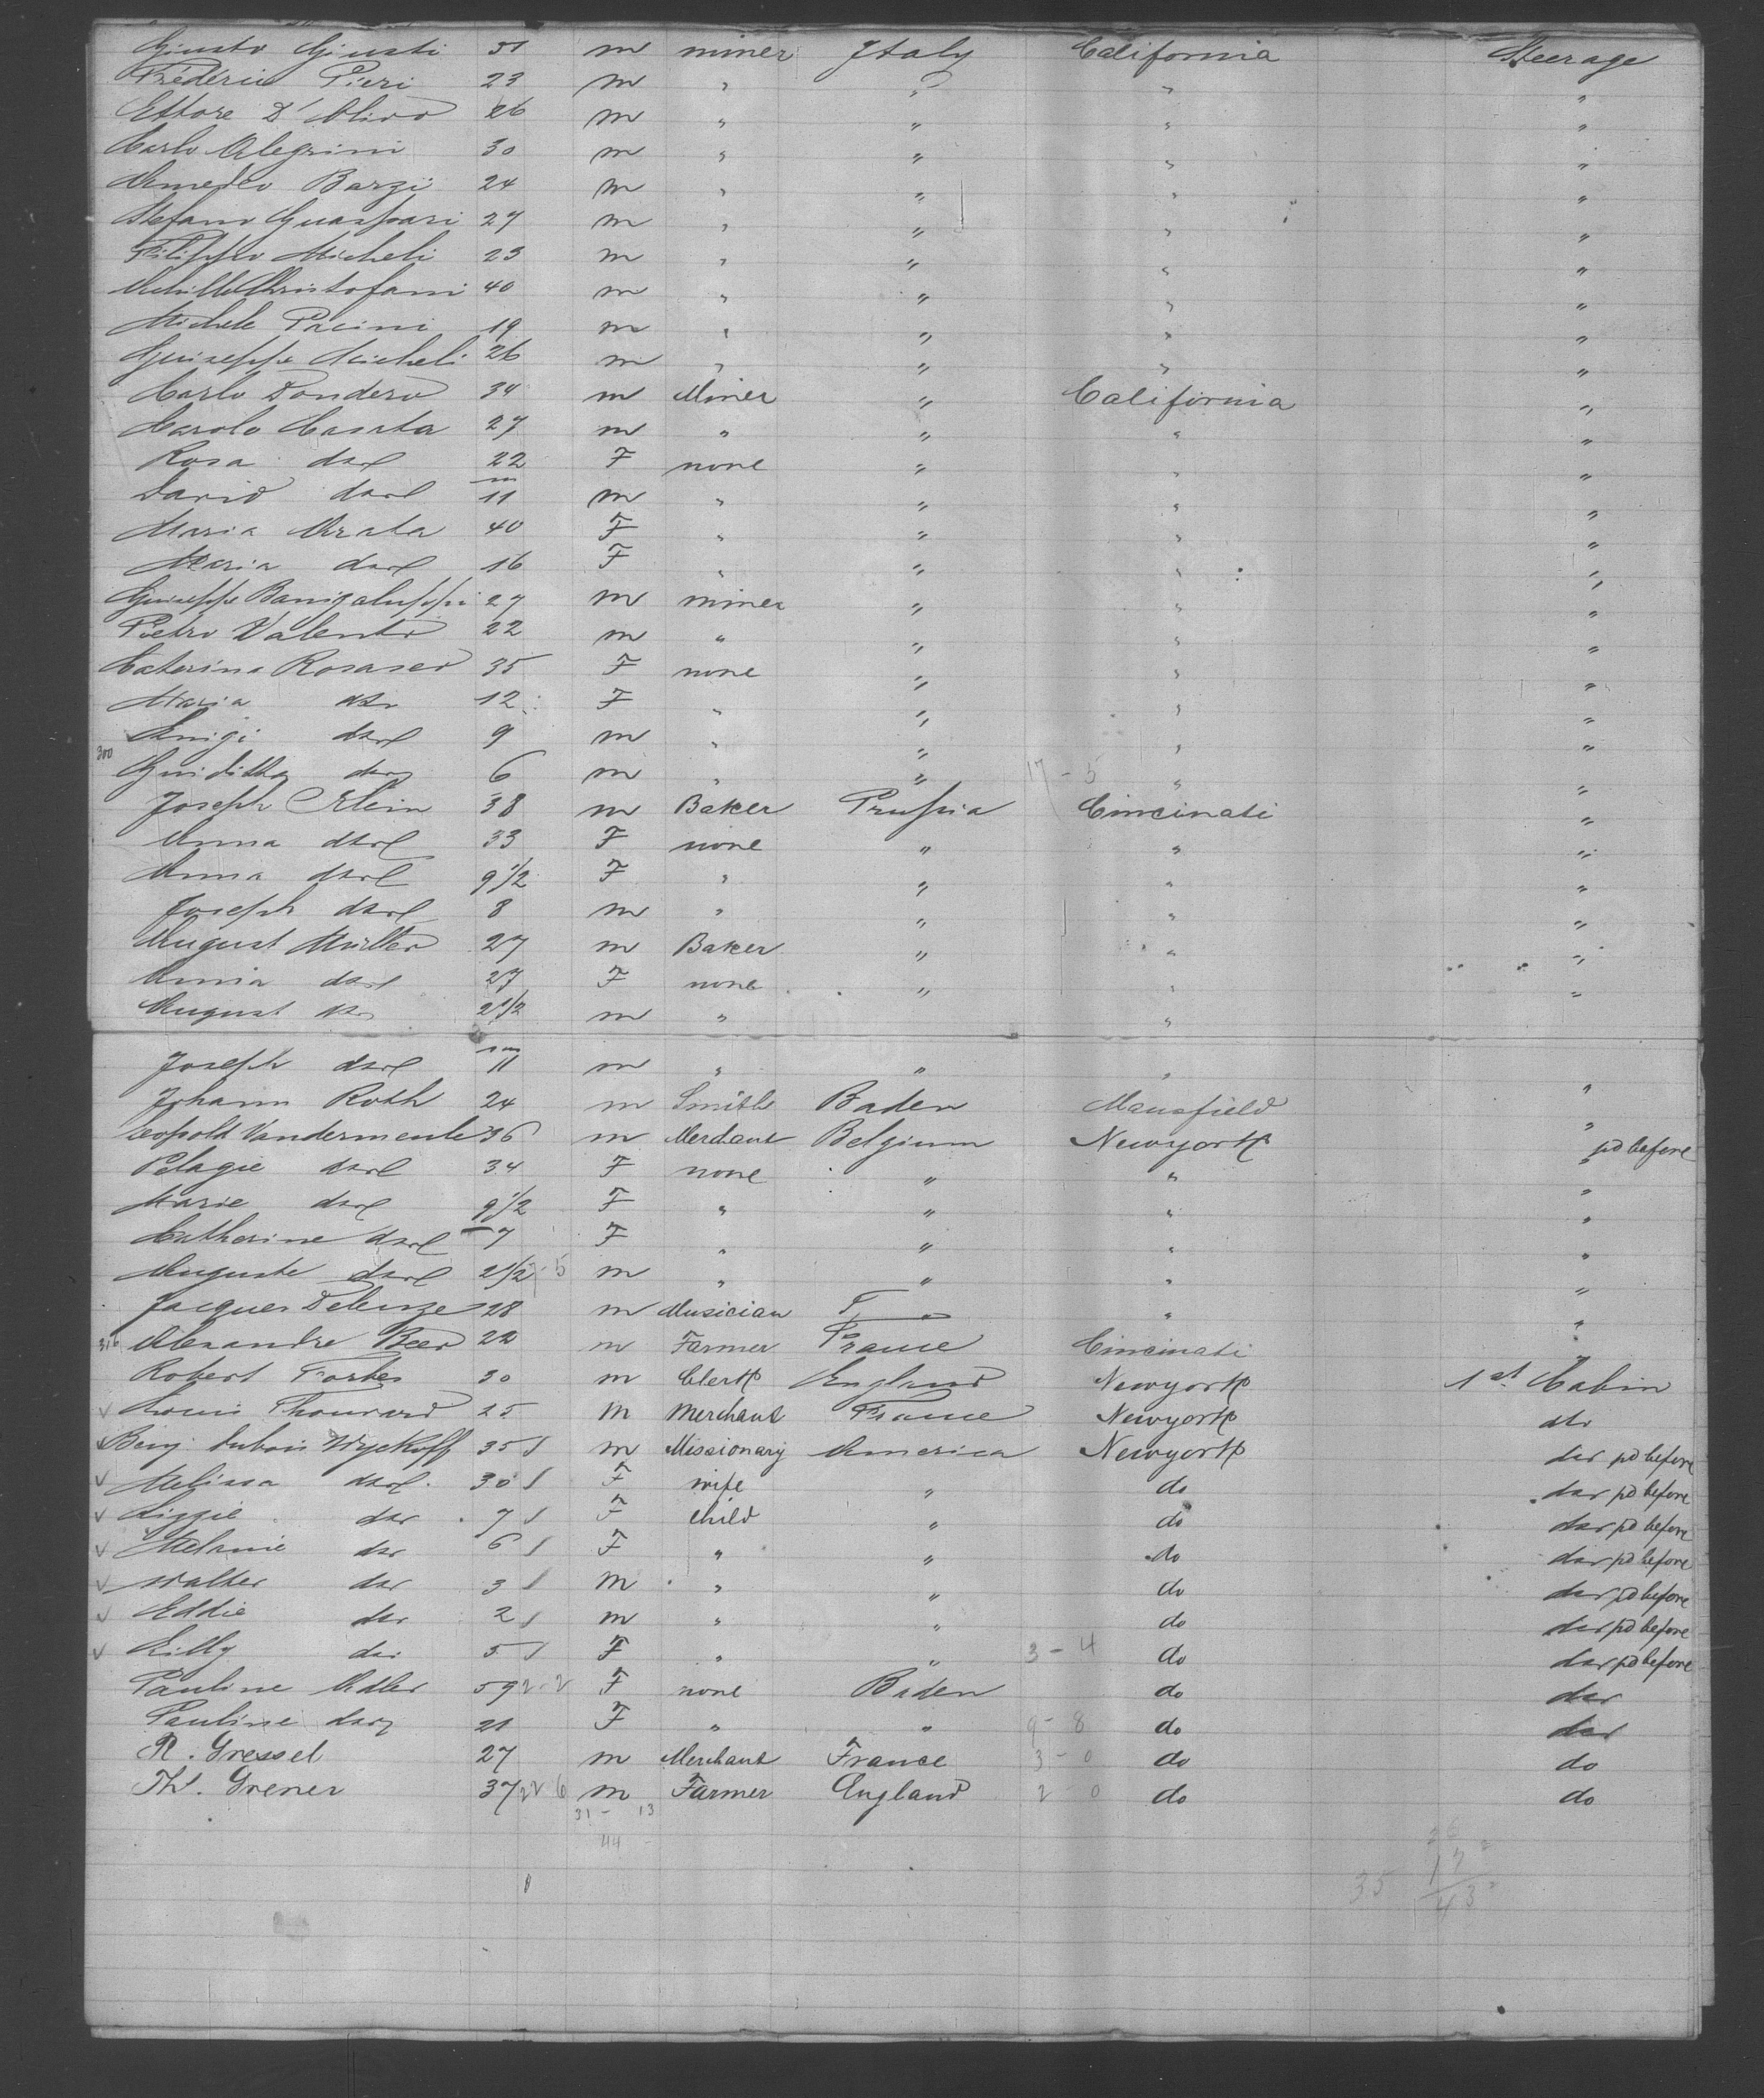 Giusto Giusti 31 m miner Italy California Steerage
Frederic Pieri 23 m " " " "
Ettore D'Olivo 26 m " " " "
Carlo Alegrini 30 m " " " "
Amedeo Barzi 24 m " " " "
Stefano Guaspari 27 m " " " "
Filippo Micheli 23 m " " " "
Achille Christofani 40 m " " " "
Michele Pacini 19 m " " " "
Guiseppe Micheli 26 m " " " "
Carlo Dondero 34 m Miner " California "
Carolo Casata 27 m " " " "
Rosa 22 F none " " "
David m 11 m " " " "
Maria Arata 40 F " " " "
Maria 16 F " " " "
Guiseppe 27 m miner " " "
Pietro Valento 22 m " " " "
Caterina Rosasco 35 F none " " "
Maria 12 F " " " "
Luigi 9 m " " " "
300 Guiditta 6 m " " 17 - 5 " "
Joseph Klein 38 m Baker Prussia Cincinati "
Anna 33 F none " " "
Anna 9 1/2 F " " " "
Joseph 8 m " " " "
August Müller 27 m Baker " " "
Anna 27 F none " " "
August 2 1/2 m " "
Joseph 11 m " " " "
Johann Roth 24 m Smith Baden Mansfield "
Leopold Vandermeule 36 m Merchant Belgium Newyork pd before
Pelagie 34 F none " " "
Marie 9 1/2 F " " " "
Catherine 7 F " " " "
Auguste 2 1/2 m " " " "
Jacques Deleuze 28 m Musician " "
316 Alexandre Beer 22 m Farmer France Cincinati "
Robert Forbes 30 m Clerk England Newyork 1st Cabin
Louis Thouvard 25 m Merchant France Newyork
Benj. Dubois Wyckoff 35 m Missionary America Newyork pd before
Melissa 30 F wife " do pd before
Lizzie 7 F Child " do pd before
Melanie 6 F " " do pd before
Walter 3 m " " do pd before
Eddie 2 m " " do pd before
Lilly 5 F " " 3 - 4 do pd before
Pauline Adler 59 F none Baden do
Pauline 21 F " " 9 - 8 do
R. Gressel 27 m Merchant France 3 - 0 do do
Th. Grener 37 m Farmer England 2 0 do do
31 - 13
44
35 43